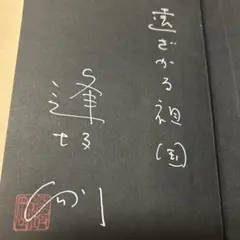 遠ざかる祖(国)
逢坂
剛